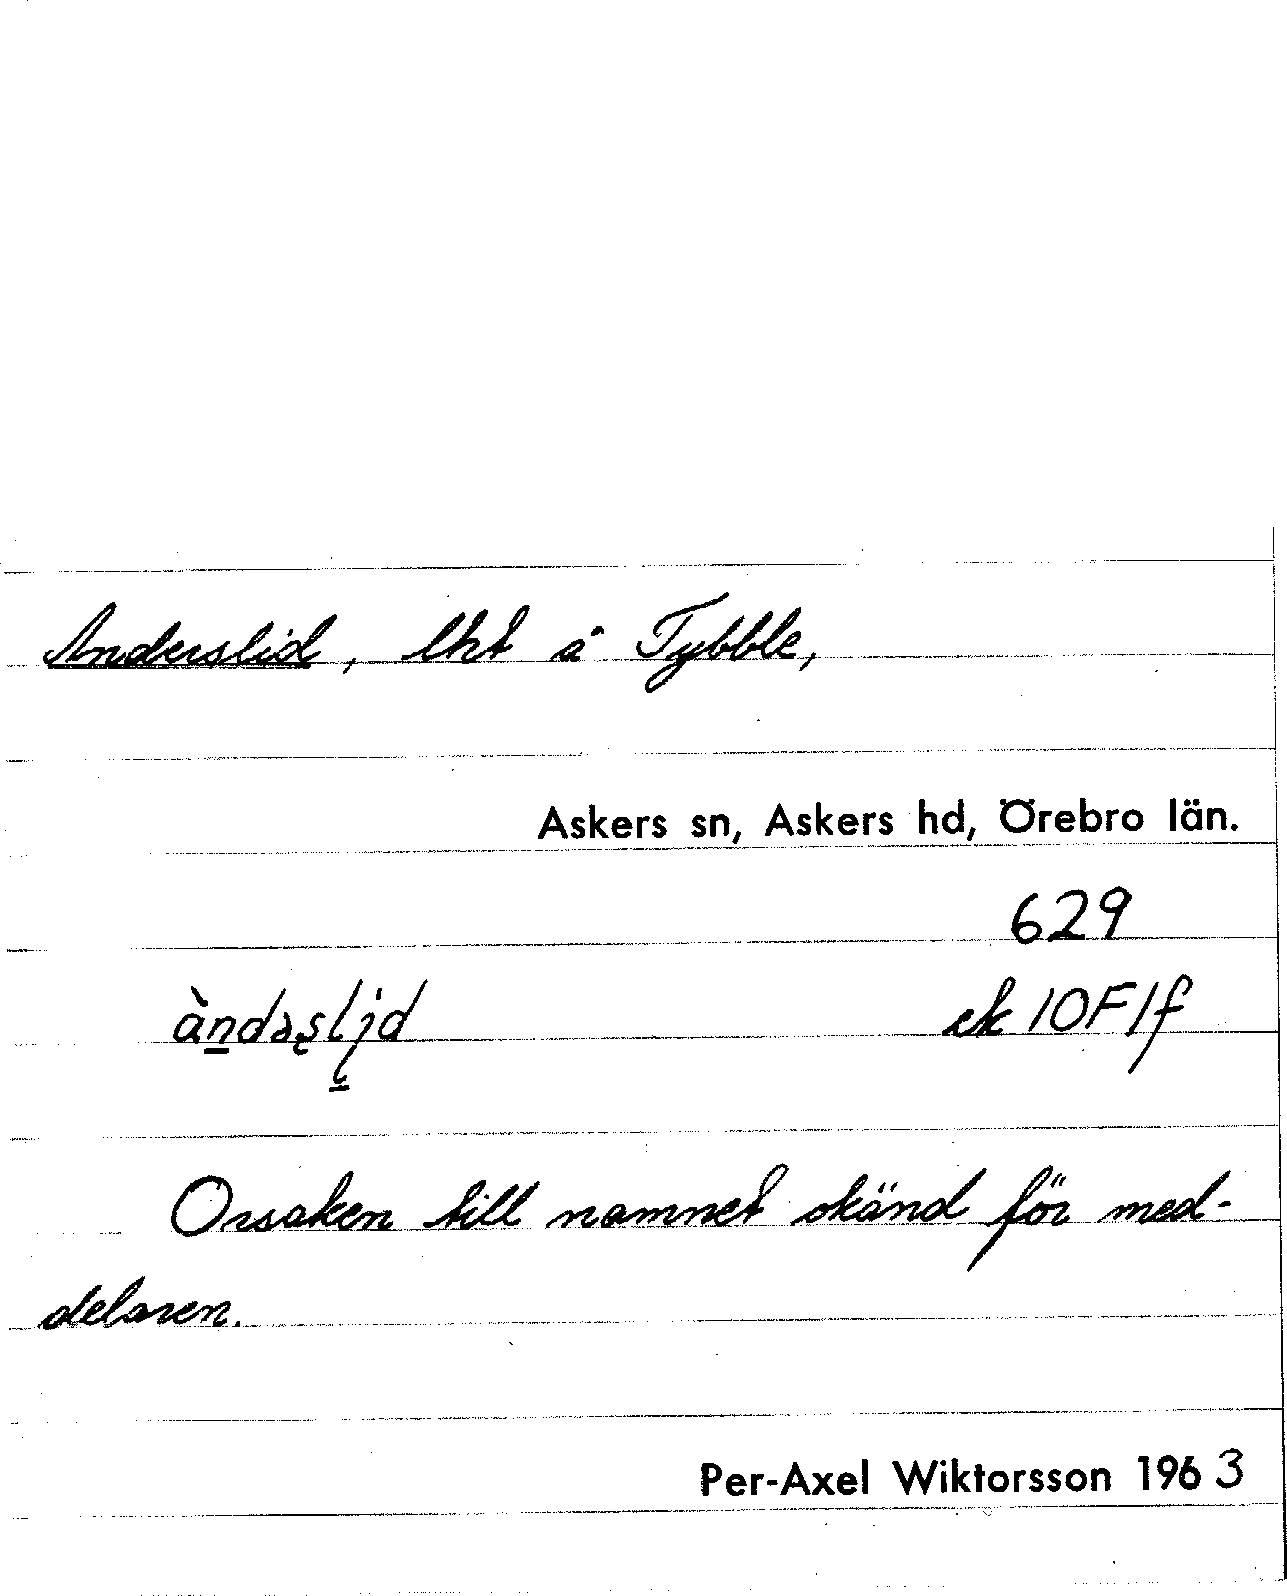 Anderslid, lht å Tybble,
Askers sn, Askers hd, Örebro län.
629
ek 10F1f
Orsaken till namnet okänd för med-
delaren.
Per-Axel Wiktorsson 1963